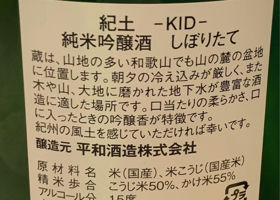 紀土 -KID-
純米吟醸酒 しぼりたて
蔵は、山地の多い和歌山でも山の麓の盆地
に位置します。朝夕の冷え込みが厳しく、また
木や山、大地に磨かれた地下水が豊富な酒
造に適した場所です。口当たりの柔らかさ、口
に入ったときの吟醸香が特徴です。
紀州の風土を感じていただければ幸いです。
醸造元 平和酒造株式会社
原材料名 米(国産)、米こうじ(国産米)
精米歩合 こうじ米50%、かけ米55%
アルコール分 15度